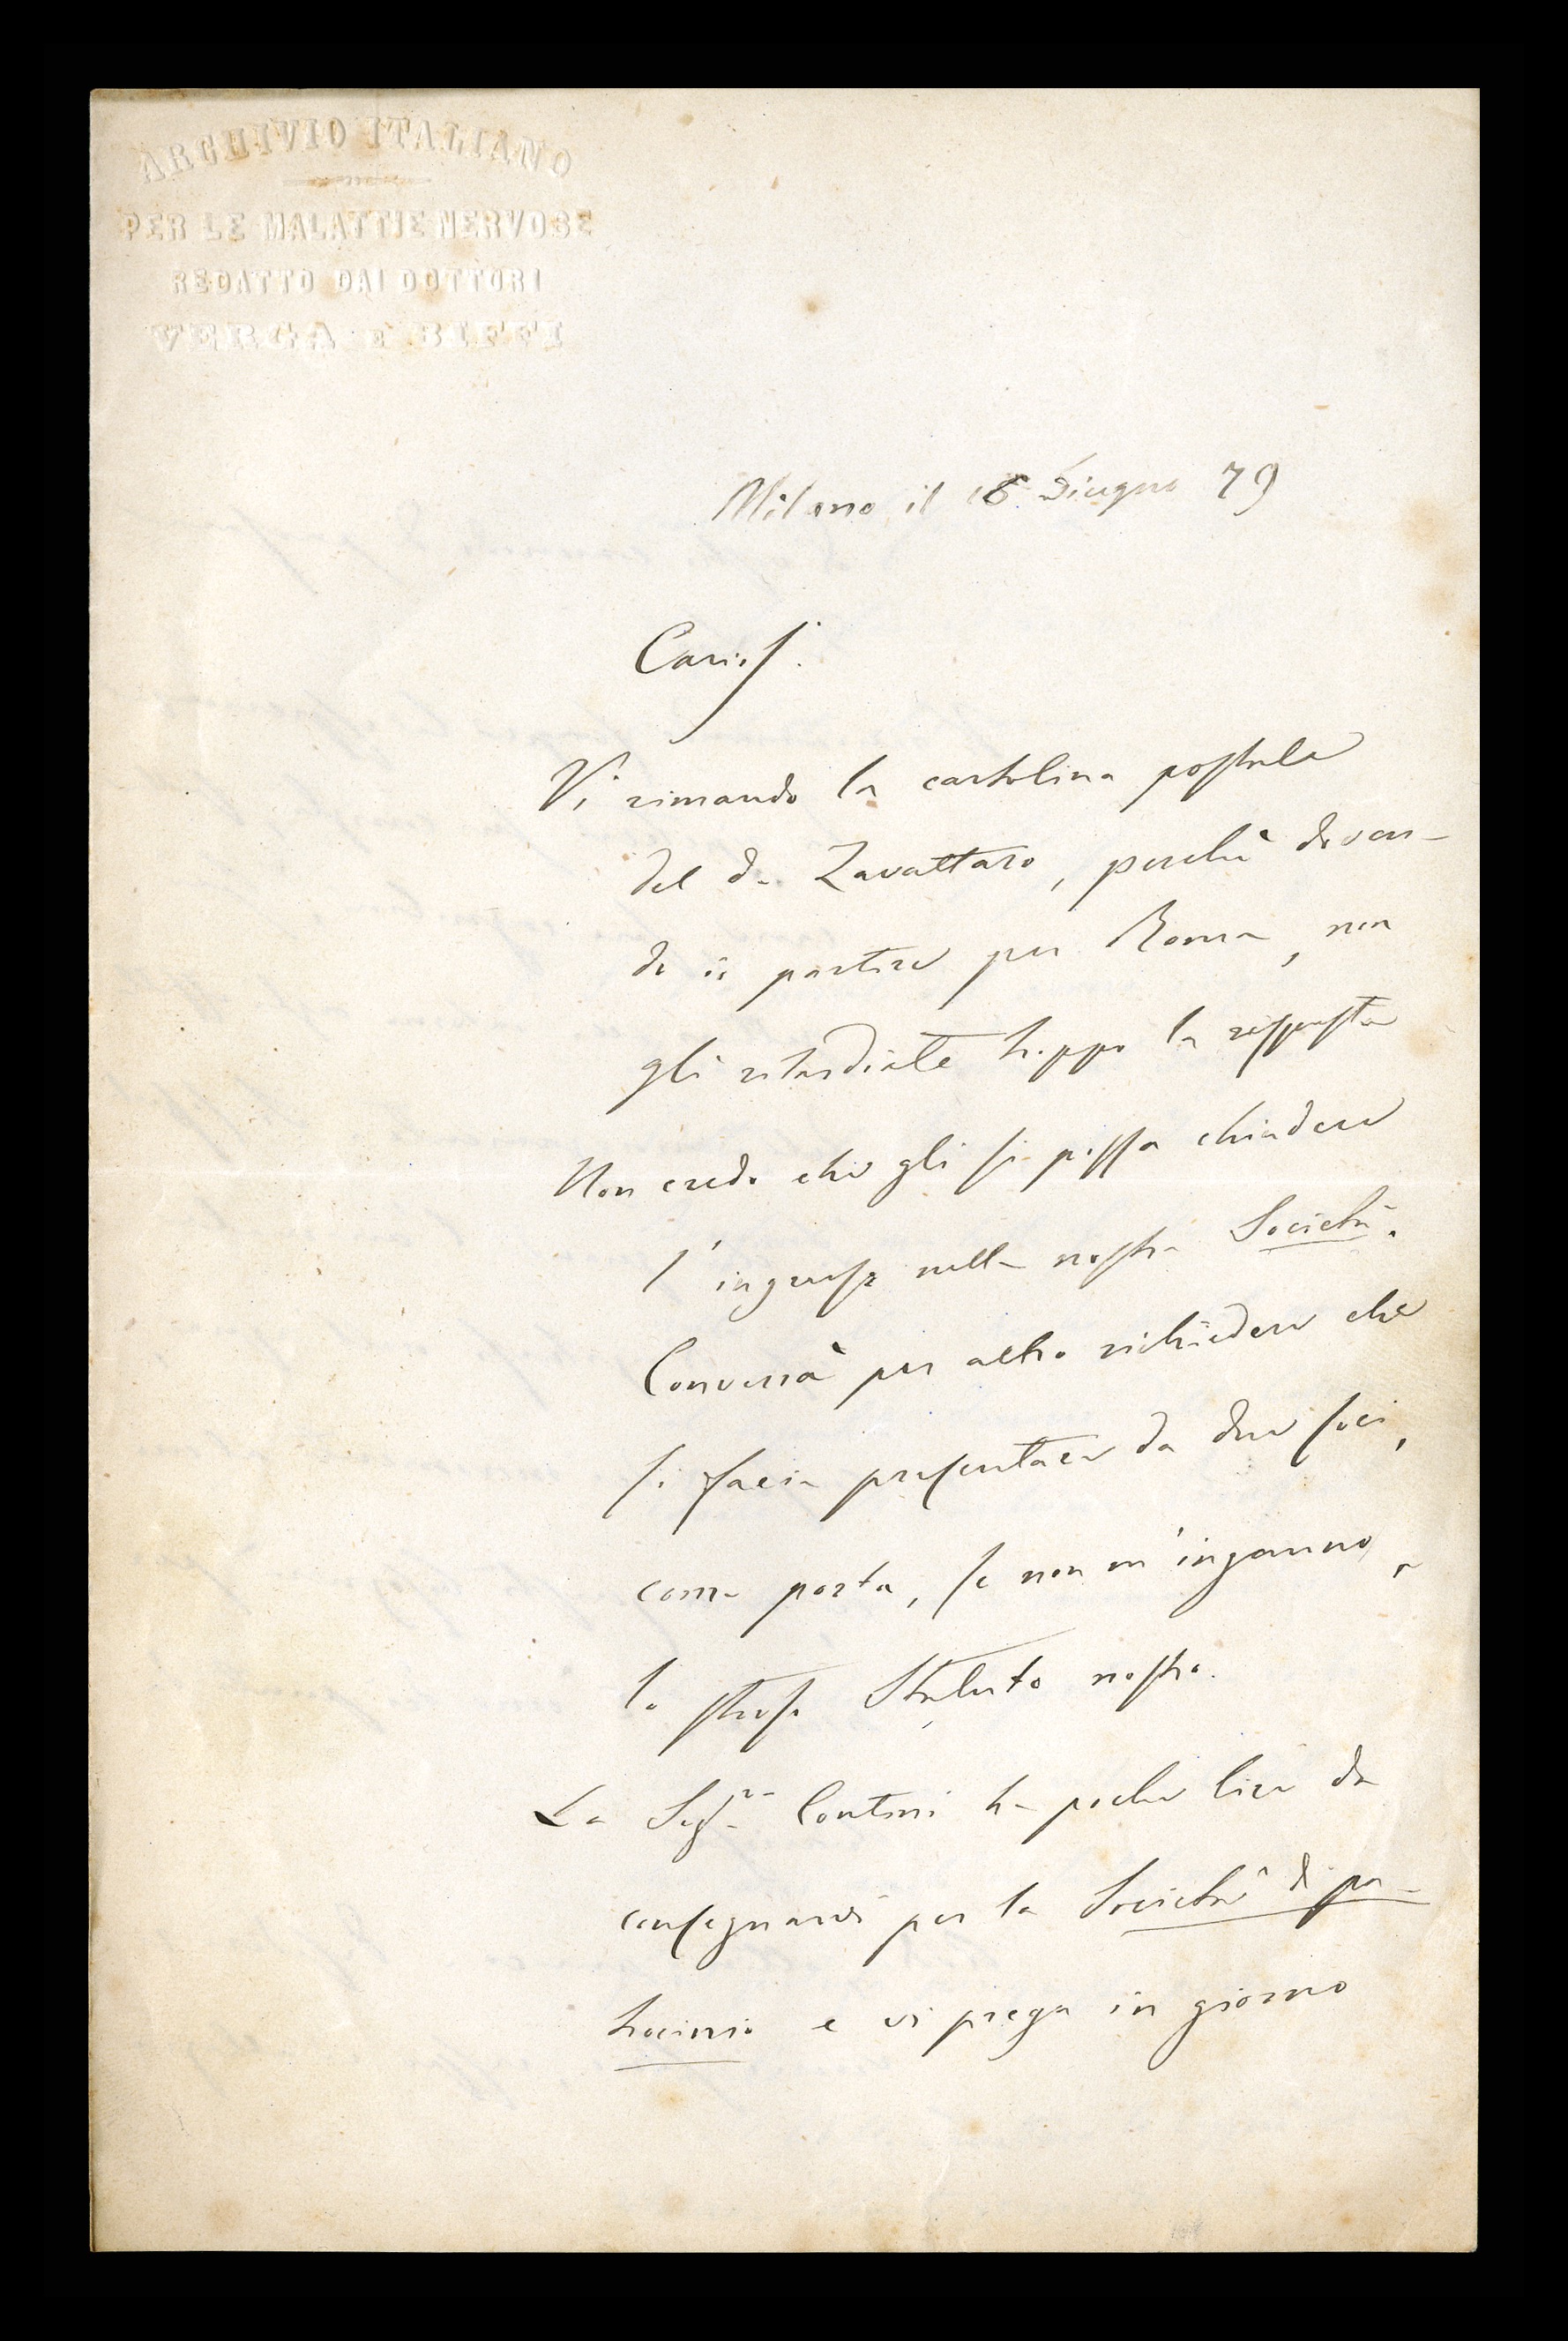 ARCHIVIO ITALIANO
PER LE MALATTIE NERVOSE
REDATTO DAI DOTTORI
VERGA E BIFFI
Milano il 18 Giugno 79
Cariss.
Vi rimando la cartolina postale
del dr Zavattaro, perchè doven-
do io partire per Roma, non
gli ritardiate troppo la risposta
Non credo che gli si possa chiudere
l'ingresso nella nostra Società.
Converrà per altro richiedere che
si facia presentare da due soci,
come porta, se non m'inganno,
lo stesso Statuto nostro.
La Sigra Contini ha poche lire da
consegnarvi per la Società di pa-
trocinio e vi prega in giorno